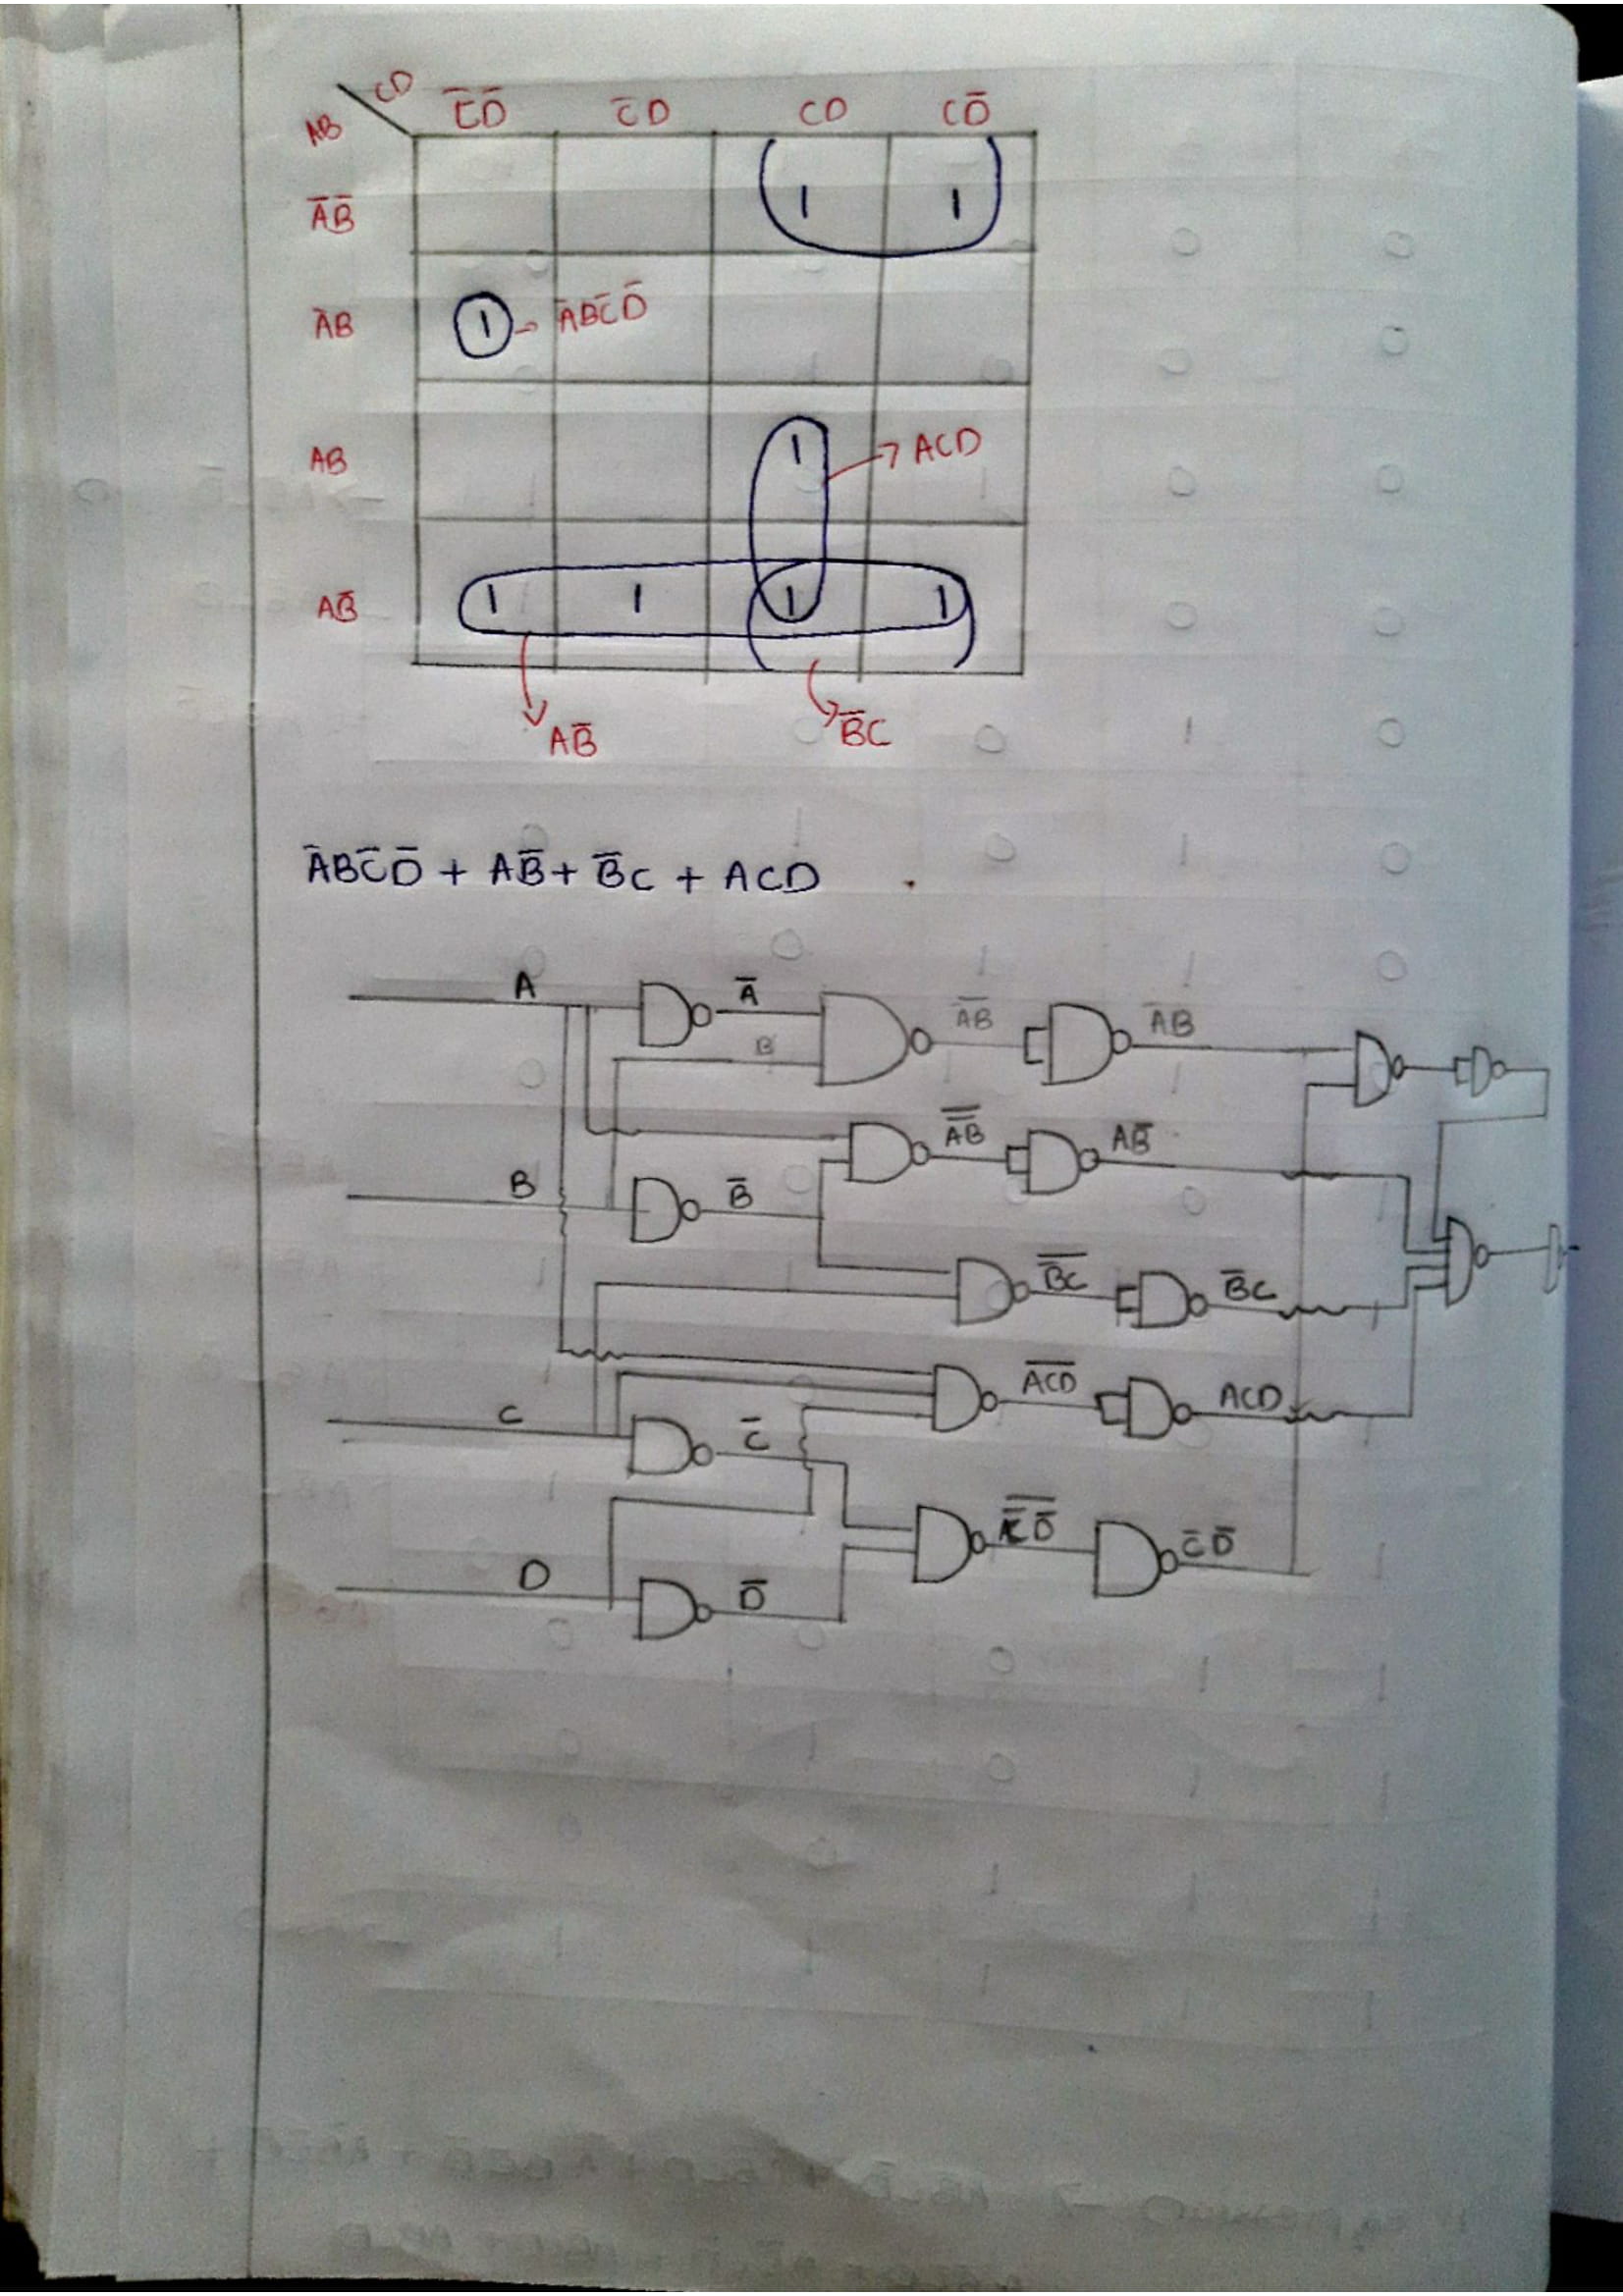 CD
AB C̅D̅ C̅D CD CD̅
A̅B̅ 1 1
A̅B 1 → A̅BC̅D̅
AB 1 → ACD
AB̅ 1 1 1 1
AB̅ B̅C
A̅BC̅D̅ + AB̅ + B̅C + ACD
A A̅ B A̅B̅ A̅B
B B̅ A̅B̿ AB̅
B̿C̅ B̅C
A̅C̅D̅ ACD
C C̅
C̿D̿ C̅D̅
D D̅